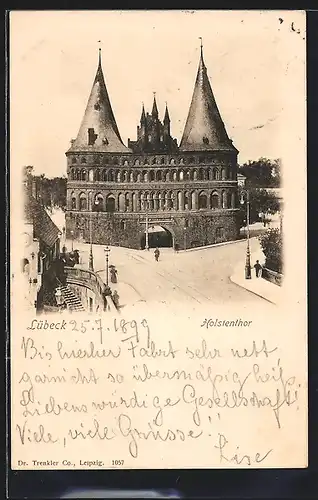 Lübeck 25.7.1899 Holstenthor
Bis hierher Fahrt sehr nett
garnicht so übermäßig heiß.
Liebenswürdige Gesellschaft!
Viele, viele Grüsse!!
Lise
Dr. Trenkler Co., Leipzig. 1057